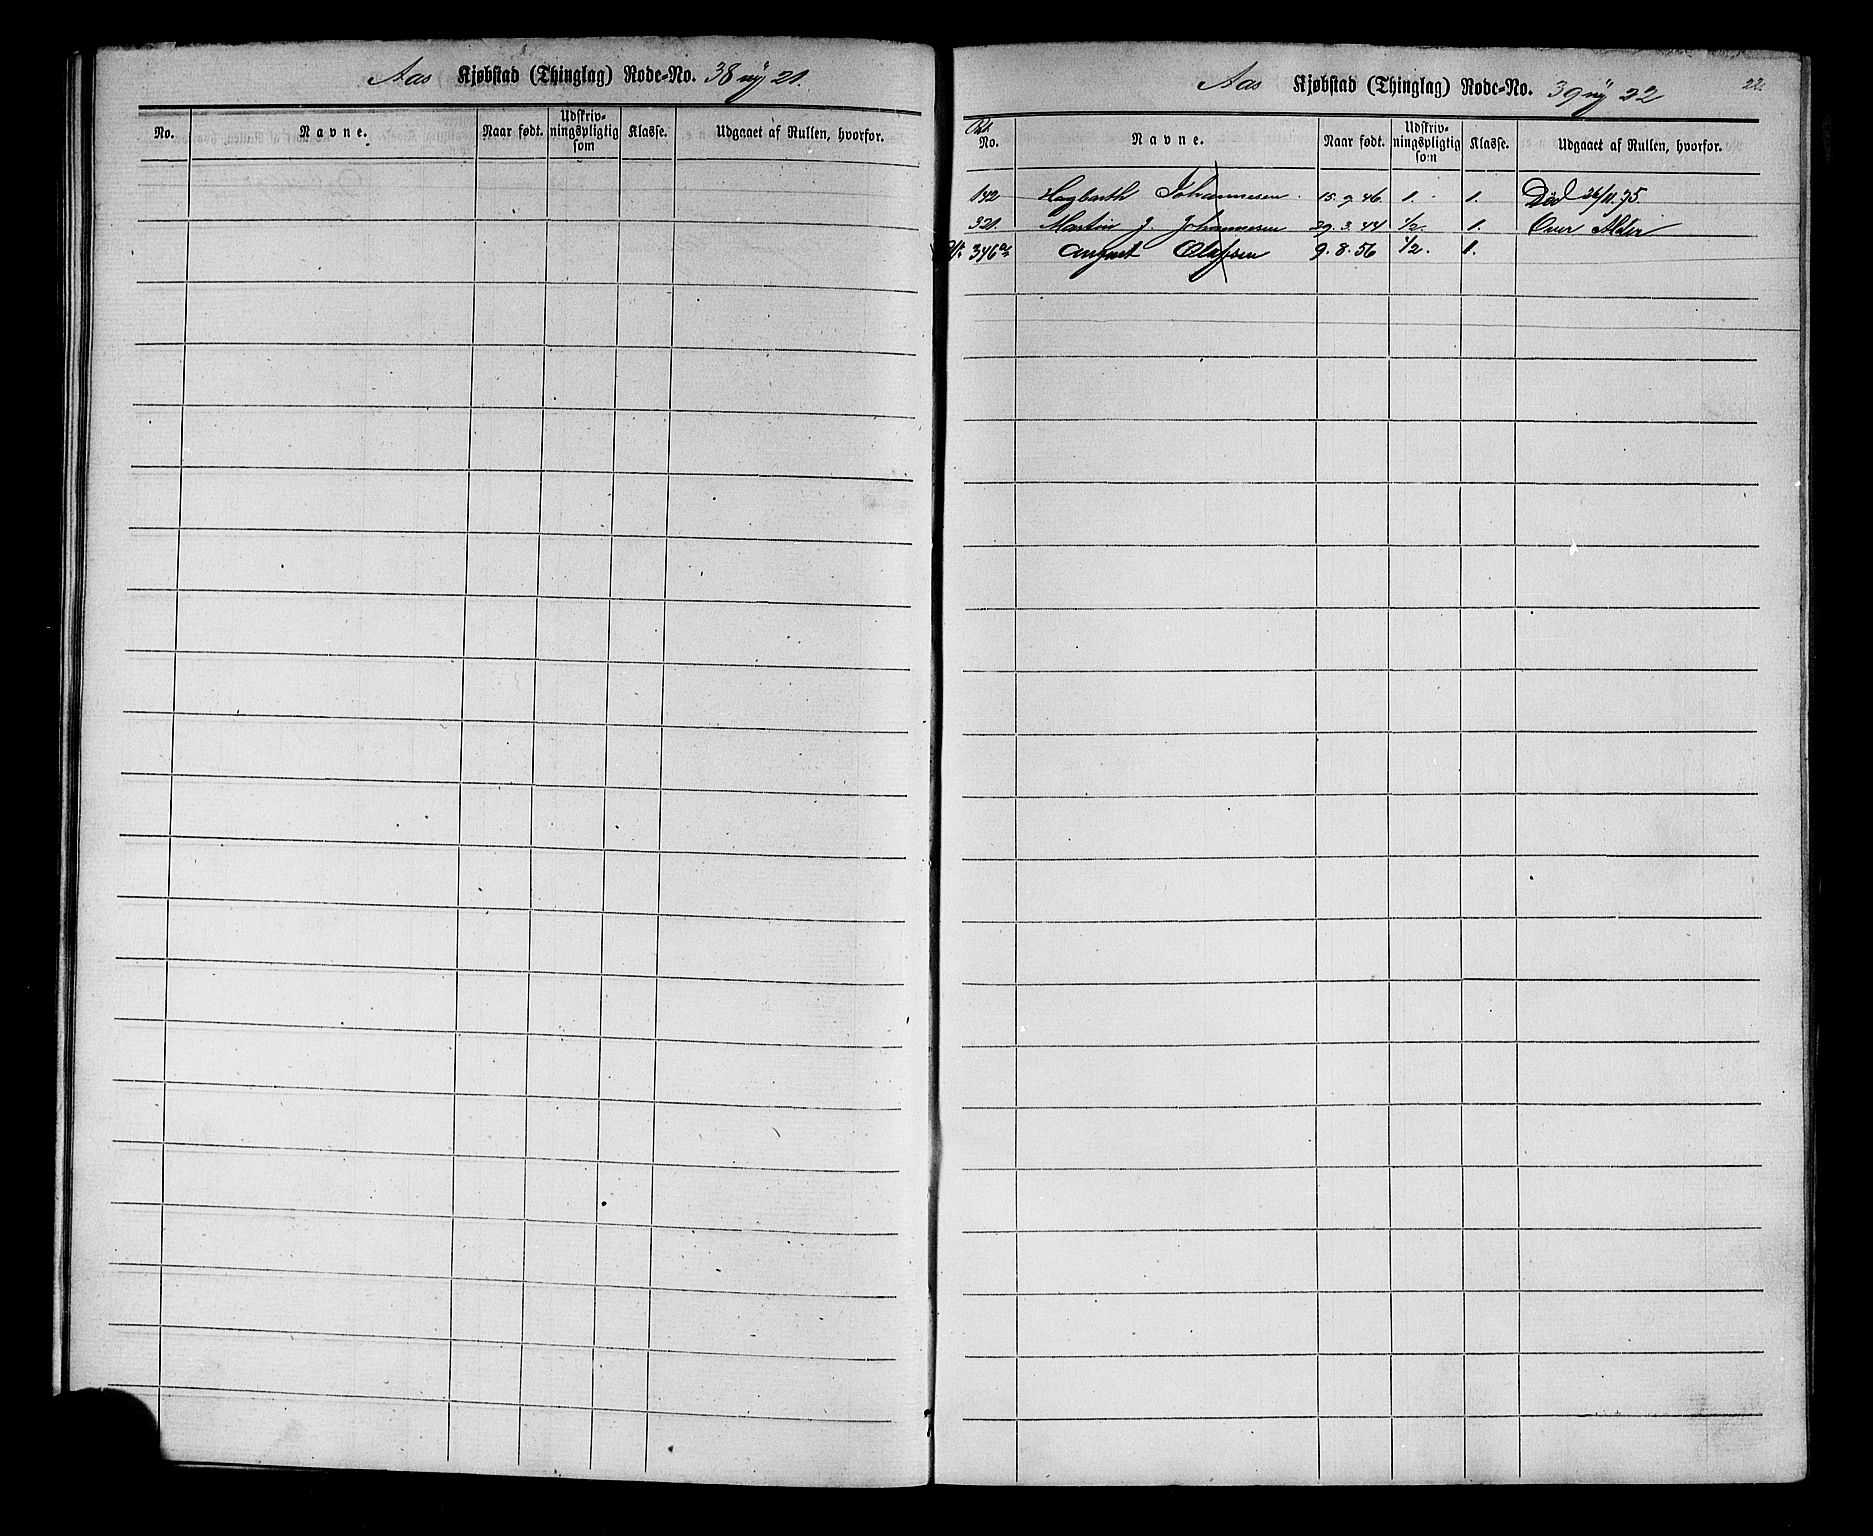 Aas Kjøbstad (Thinglag) Rode-No. 38 ny 21.
No. Navne. Naar født. Udskriv-ningspligtig som Klasse. Udgaaet af Rullen, hvorfor.
Aas Kjøbstad (Thinglag) Rode-No. 39 ny 22
22.
No. Navne. Naar født. Udskriv-ningspligtig som Klasse. Udgaaet af Rullen, hvorfor.
142 Hagbarth Johannesen 15. 9. 46. 1. 1. Død 26/11.75.
321. Martin J. Johannesen 29. 3. 44 1/2. 1. Over Alder
346 August Olafsen 9. 8. 56 1/2. 1.